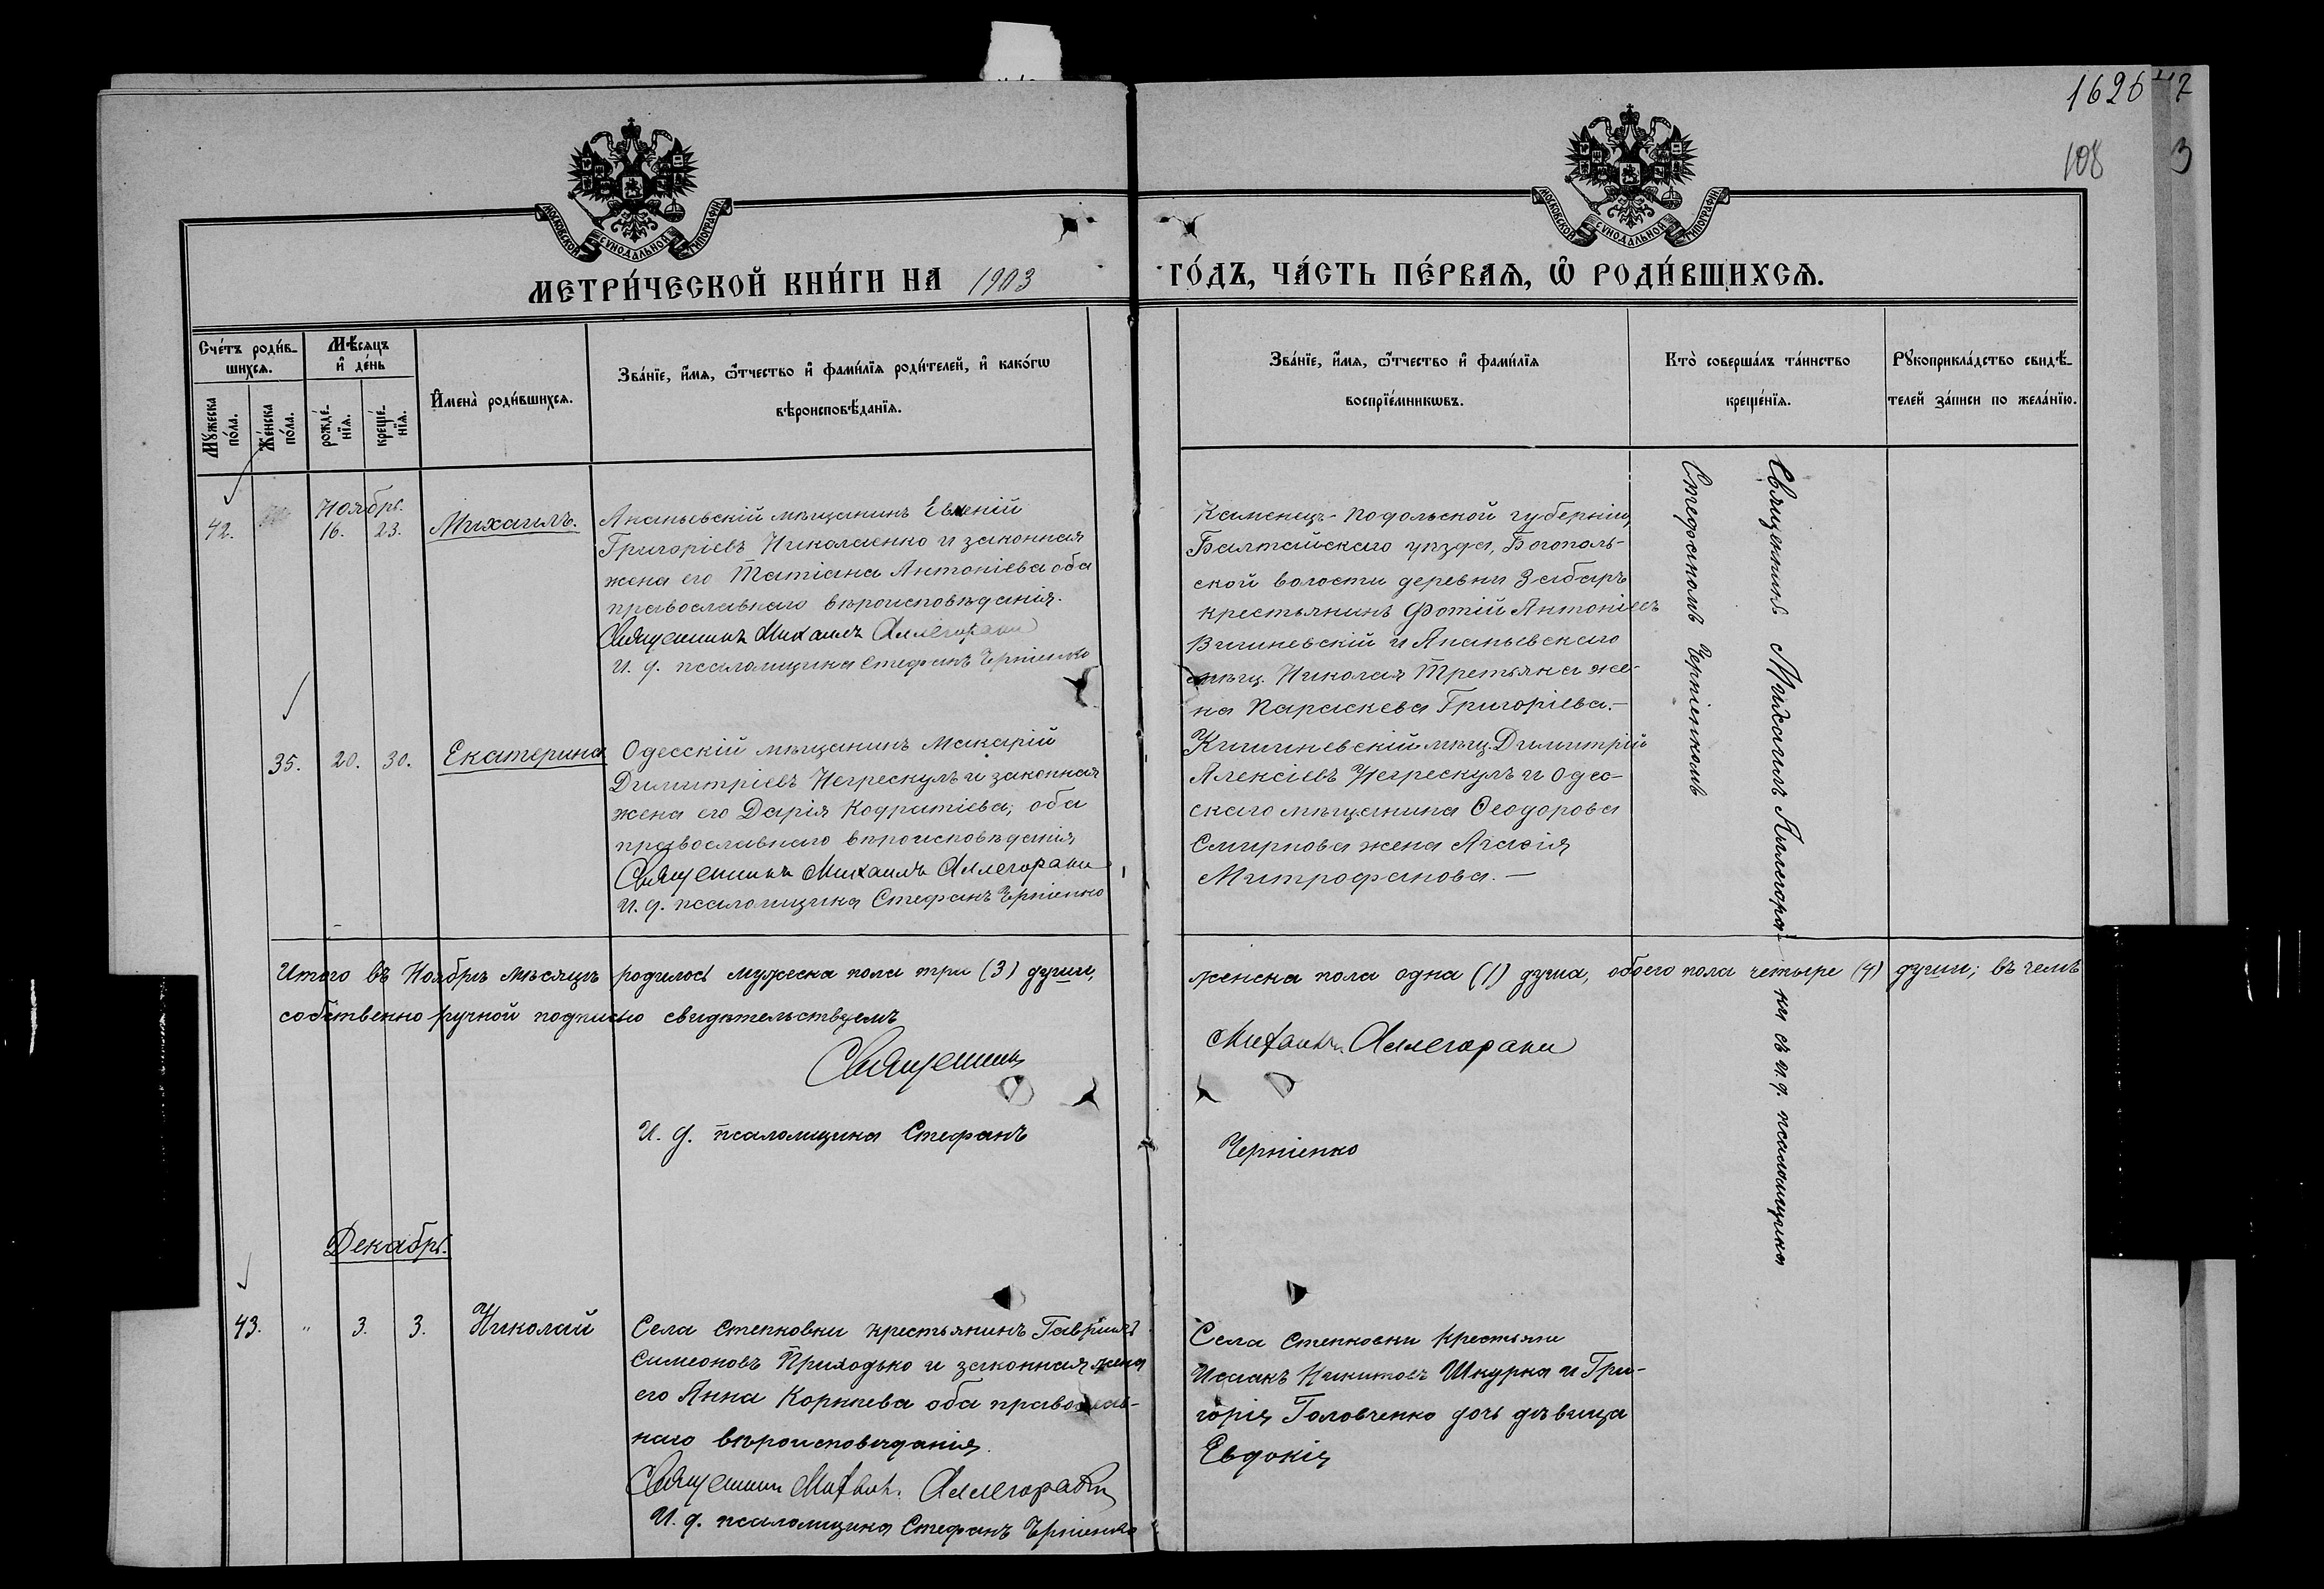 1626
47
108
3
МОСКОВСКОЙ СУНОДАЛЬНОЙ ТИПОГРАФІИ
МОСКОВСКОЙ СУНОДАЛЬНОЙ ТИПОГРАФІИ
МЕТРИ́ЧЕСКОЙ КНИ́ГИ НА 1903
ГО́ДЪ, ЧА́СТЬ ПЕ́РВАѦ, Ѡ҆ РОДИ́ВШИХСѦ.
Сче́тъ роди́в-
шихсѧ.
Мꙋ́жеска
по́ла.
Же́нска
по́ла.
Мѣ́сѧцъ
и҆ де́нь
рожде́-
нїѧ.
креще́-
нїѧ.
И҆мена̀ роди́вшихсѧ.
Зва́нїе, и҆́мѧ, ѻ҆́тчество и҆ фами́лїѧ роди́телей, и҆ како́гѡ
вѣроисповѣ́данїѧ.
Зва́нїе, и҆́мѧ, ѻ҆́тчество и҆ фами́лїѧ
воспрїе́мникѡвъ.
Кто̀ соверша́лъ та́инство
креще́нїѧ.
Рꙋкоприкла́дство свидѣ́-
телей за́писи по жела́нїю.
Ноябрь.
42.
16.
23.
Михаилъ.
Ананьевскій мѣщанинъ Евгеній
Григоріевъ Николаенко и законная
жена его Татіана Антоніева оба
православнаго вѣроисповѣданія.
Священникъ Михаилъ Аллегораки
И. д. псаломщика Стефанъ Черніенко
Каменецъ-Подольской губерніи,
Балтайскаго уѣзда, Богополь-
ской волости деревни Забаръ
крестьянинъ Фотій Антоніевъ
Вишневскій и Ананьевскаго
мѣщ. Николая Третьяка же-
на Параскева Григоріева.—
Священникъ Михаилъ Аллегора-
ки съ и. д. псаломщика
Стефаномъ Черніенкомъ
35.
20.
30.
Екатерина
Одесскій мѣщанинъ Макарій
Димитріевъ Негрескулъ и законная
жена его Дарія Кодратіева, оба
православнаго вѣроисповѣданія,
Священникъ Михаилъ Аллегораки
И. д. псаломщика Стефанъ Черніенко
Кишиневскій мѣщ. Димитрій
Алексіевъ Негрескулъ и Одес-
скаго мѣщанина Ѳеодорова
Смирнова жена Агаѳія
Митрофанова.—
Итого въ Ноябрѣ мѣсяцѣ родилось мужеска пола три (3) души, женска пола одна (1) душа, обоего пола четыре (4) души; въ чемъ
собственно ручной подписью свидѣтельствуемъ
Священникъ Михаилъ Аллегораки
И. д. псаломщика Стефанъ Черніенко
Декабрь.
43.
"
3.
3.
Николай
Села Степковки крестьянинъ Гавріилъ
Симеоновъ Приходько и законная жена
его Анна Корніева оба православ-
наго вѣроисповѣданія.
Священникъ Михаилъ Аллегораки
И. д. псаломщика Стефанъ Черніенко
Села Степковки крестьяне
Исаакъ Никитовъ Шкурка и Гри-
горія Головченко дочь дѣвица
Евдокія